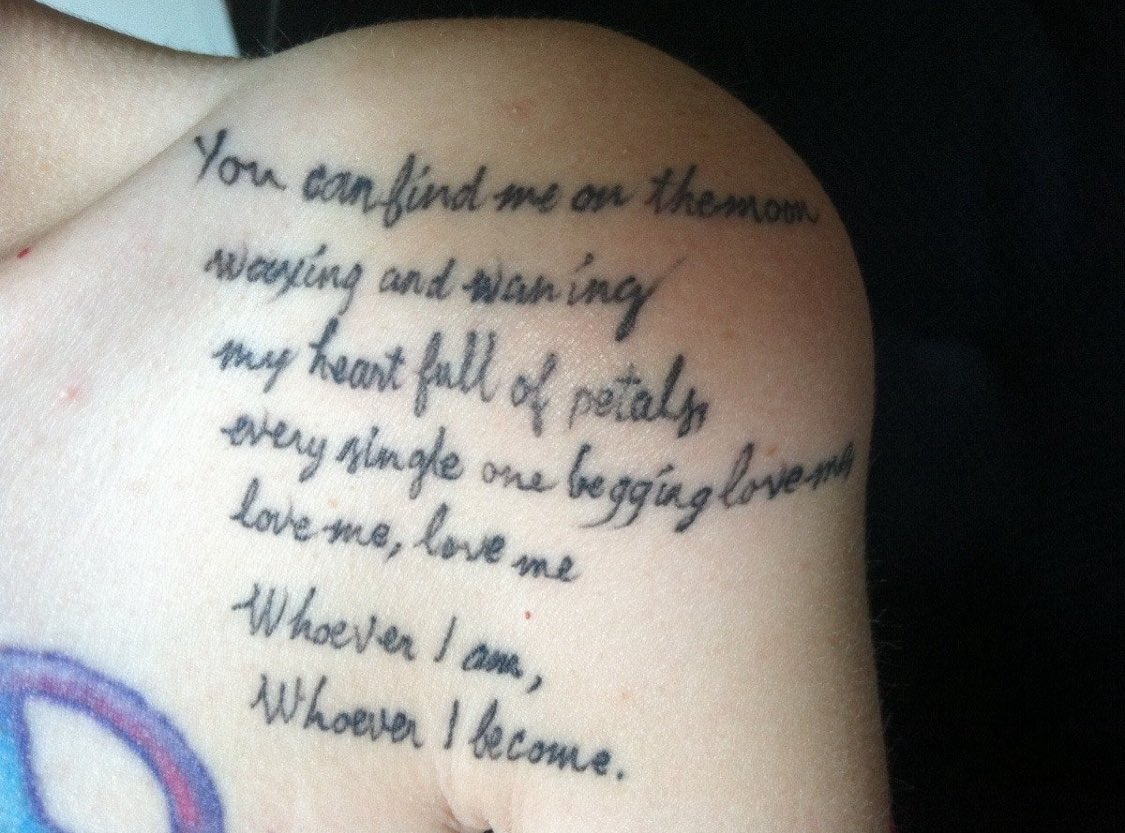 You can find me on the moon
waxing and waning
my heart full of petals,
every single one begging love me
love me, love me
Whoever I am,
Whoever I become.